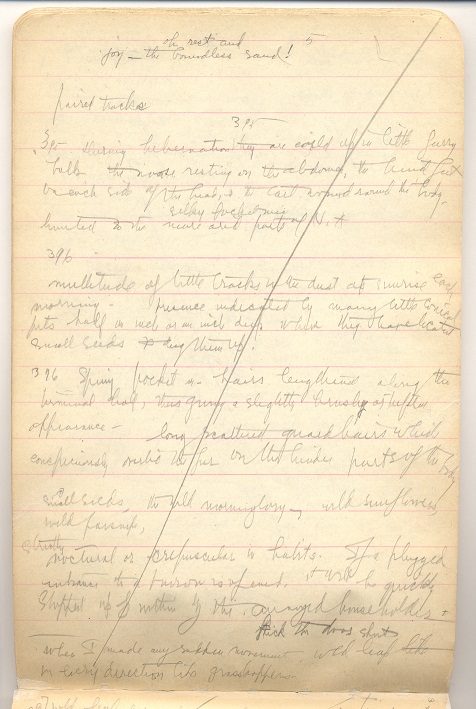 oh rest and 5
joy – the boundless sand!
paired tracks
395
395 During hibernation they are coild up in little furry
balls the noose resting on the abdomen, the hind feet
on each side of the head, & the tail around the body.
silky pocket mice
limited to the more arid parts of N. A
396
multitude of little tracks in the dust at sunrise each
morning – presence indicated by many little conical
pits half an inch or an inch deep where they have located
small seeds & dug them up.
396 Spiny pocket m. hairs lengthend along the
terminal half, thus giving a slightly brushy or tufted
appearance – long scattered guard hairs which
conspicuously overlie the fur on the hinder parts of the body
small seeds, the wild morning glory – wild sunflowers,
wild parsnip,
strictly
nocturnal or crepuscular in habits. If a plugged
entrance to a burrow is opened, it will be quickly
stopped up from within by the annoyed householder
kick the doors shut
when I made any sudden movement wld leap
in every direction like grasshoppers